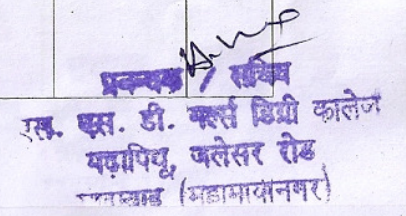 प्रबन्धक / सचिव
एस. एस. डी. गर्ल्स डिग्री कालेज
जलेसर रोड
(महामायानगर)